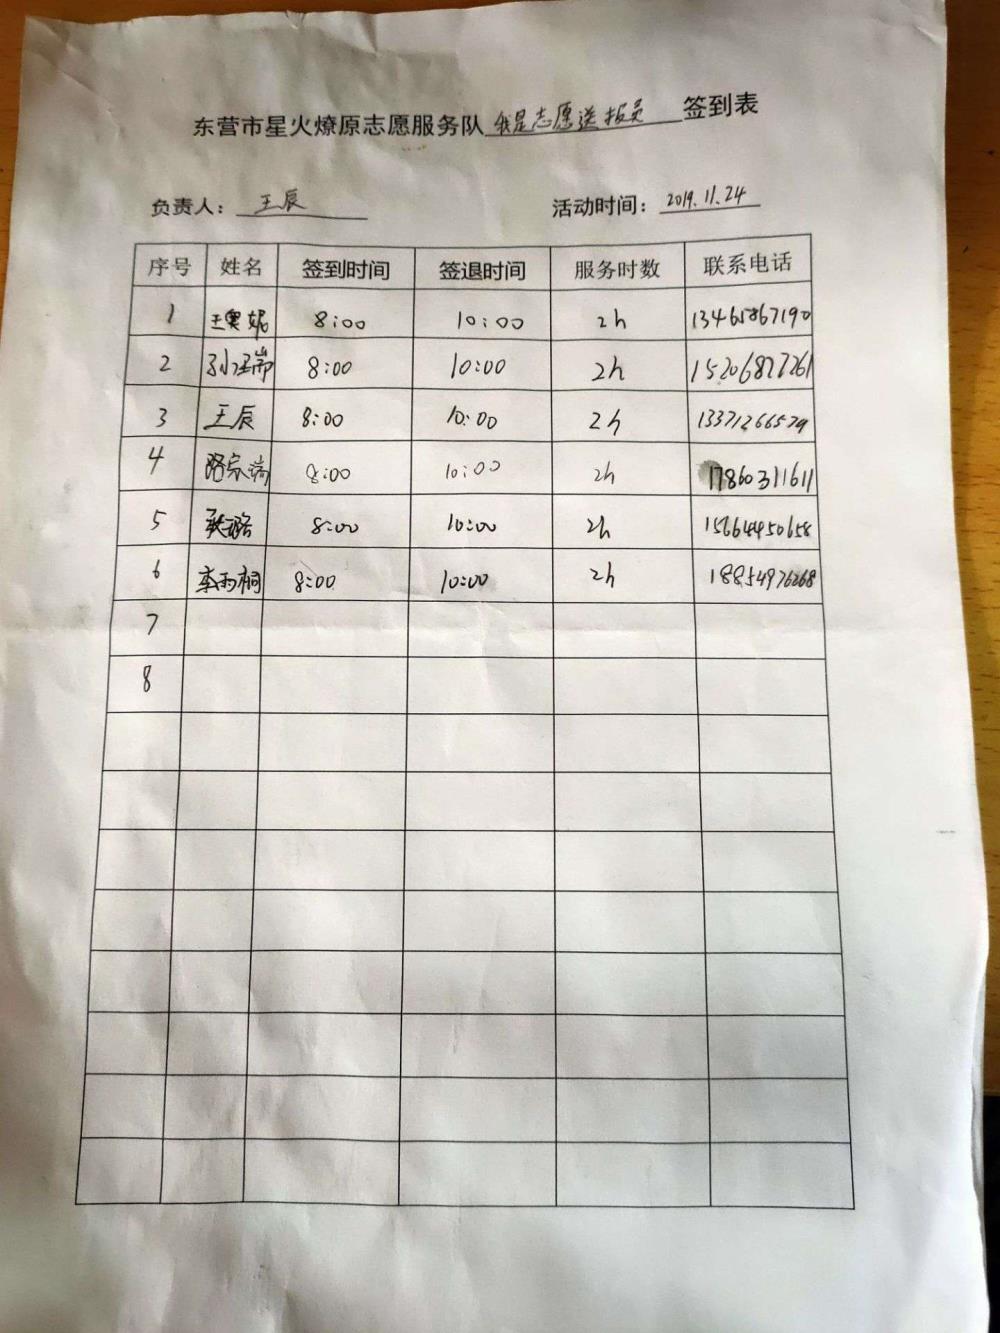 东营市星火燎原志愿服务队 我是志愿送报员 签到表
负责人： 王辰 活动时间： 2019.11.24
序号 姓名 签到时间 签退时间 服务时数 联系电话
1 王奥妮 8:00 10:00 2h 13465867190
2 8:00 10:00 2h 15206827261
3 王辰 8:00 10:00 2h 13371266579
4 路宗瑞 8:00 10:00 2h 17860311611
5 耿璐 8:00 10:00 2h 15664450658
6 李雨桐 8:00 10:00 2h 18854976268
7
8